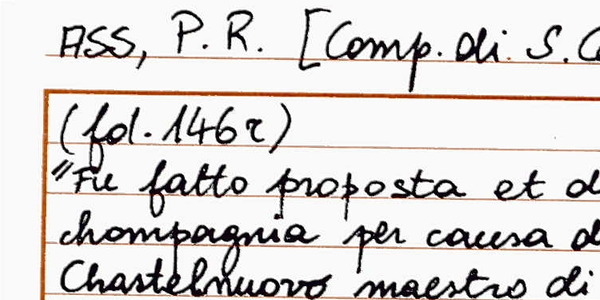 ASS, P.R. [Comp. di S.
(fol. 146r)
"Fu fatto proposta et
chompagnia per causa
Chastelnuovo maestro di